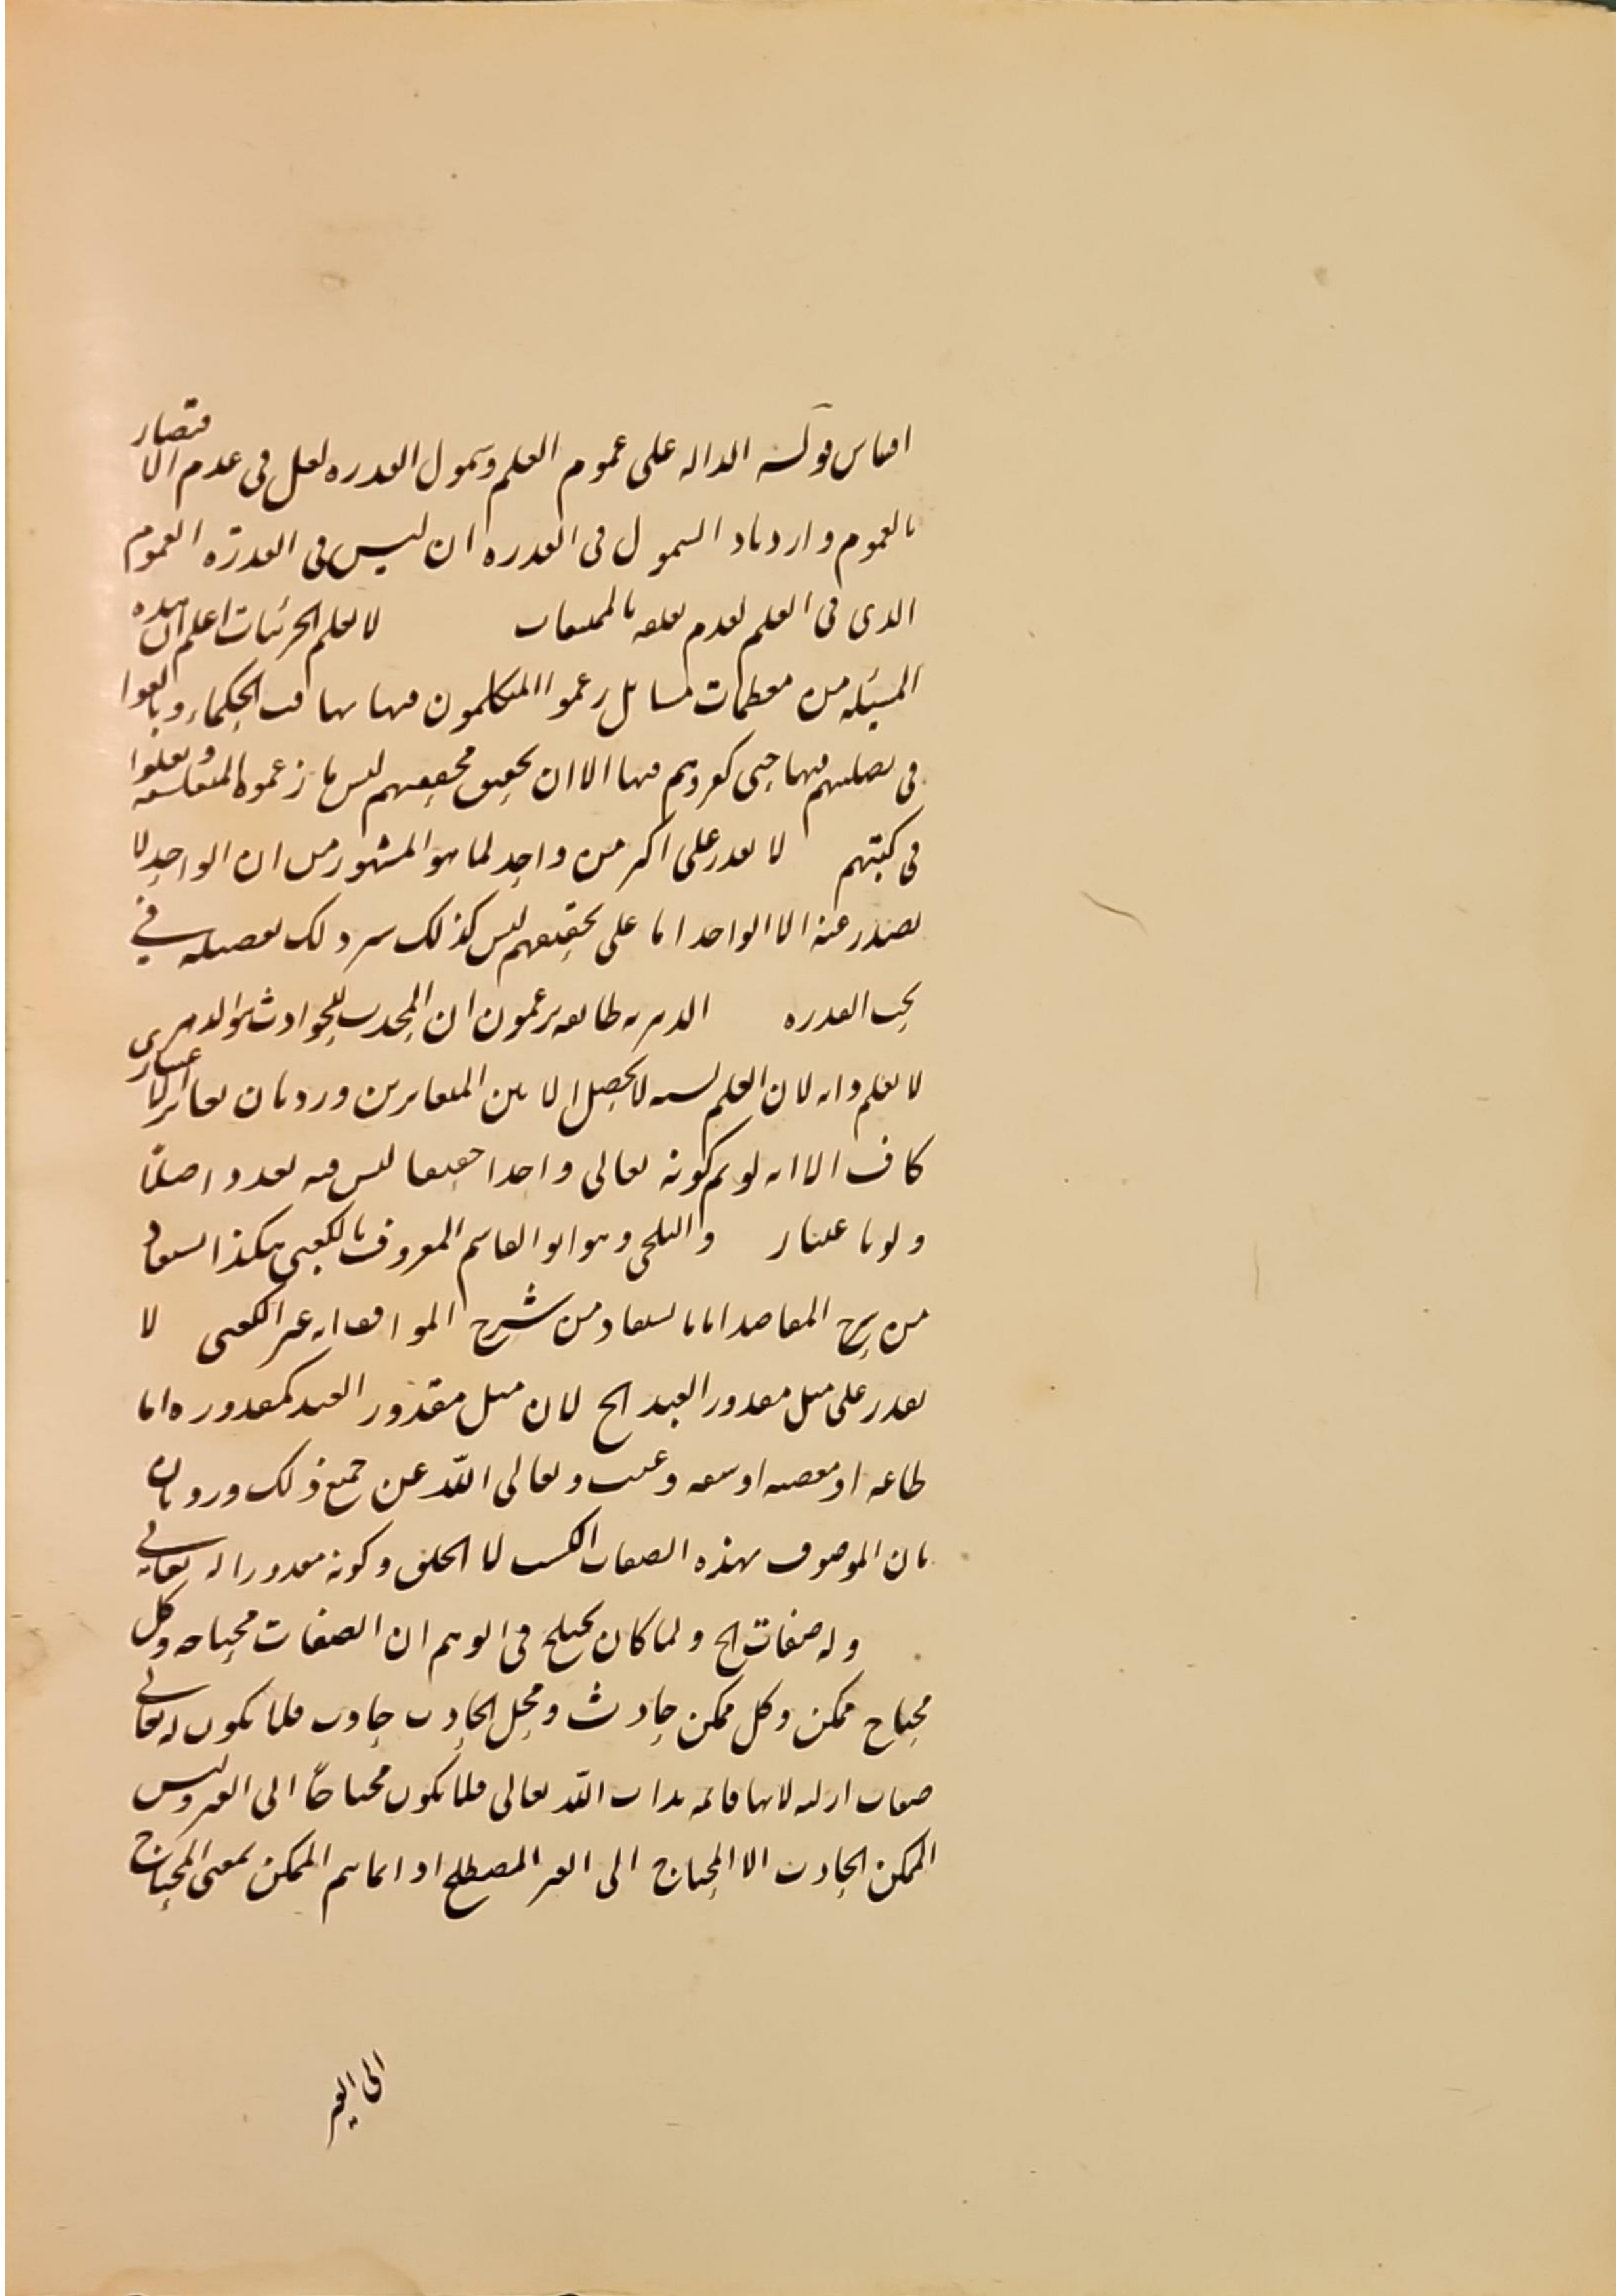 اقتباس قوله الدالة على عموم العلم وشمول القدرة لعل في عدم الاقتصار
بالعموم وازدياد الشمول في القدرة ان ليس في القدرة العموم
الذي في العلم لعدم تعلقه بالممتنعات لا يعلم الجزئيات اعلم ان هذه
المسئلة من معظمات مسائل زعموا المتكلمون فيها تهافت الحكماء وبالغوا
في تضليلهم فيها حتى كفروهم فيها الا ان تحقيق محققيهم ليس ما زعموه المتفلسفه ونقلوا
في كتبهم لا يقدر على اكثر من واحد لما هو المشهور من ان الواحد لا
يصدر عنه الا الواحد اما على تحقيقهم ليس كذلك سيرد لك تفصيله في
بحث القدرة الدهرية طائفة يزعمون ان المحدث للحوادث هو الدهر
لا يعلم ذاته لان العلم نسبه لا يحصل الا بين المتغايرين ورد بان تغاير الاعتبار
كاف الا انه لو تم كونه تعالى واحدا حقيقيا ليس فيه تعدد اصلا
ولو باعتبار والبلخي وهو ابو القاسم المعروف بالكعبي هكذا يستفاد
من شرح المقاصد اما ما يستفاد من شرح المواقف انه غير الكعبي لا
يقدر على مثل مقدور العبد الخ لان مثل مقدور العبد كمقدوره اما
طاعه او معصيه او سفه وعبث وتعالى الله عن جميع ذلك ورد بان
بان الموصوف بهذه الصفات الكسب لا الخلق وكونه مقدورا له تعالى
وله صفات الخ ولما كان يختلج في الوهم ان الصفات محتاجه وكل
محتاج ممكن وكل ممكن حادث ومحل الحادث حادث فلا يكون له تعالى
صفات ازليه لانها قائمه بذات الله تعالى فلا يكون محتاجا الى الغير وليس
الممكن الحادث الا المحتاج الى الغير المصطلح اذ انما سم الممكن بمعنى المحتاج
الى الغير